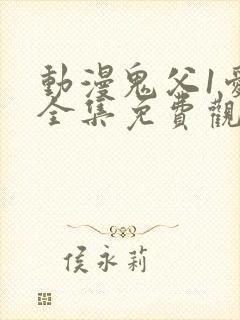 動漫鬼父1
全集免費觀
侯永莉